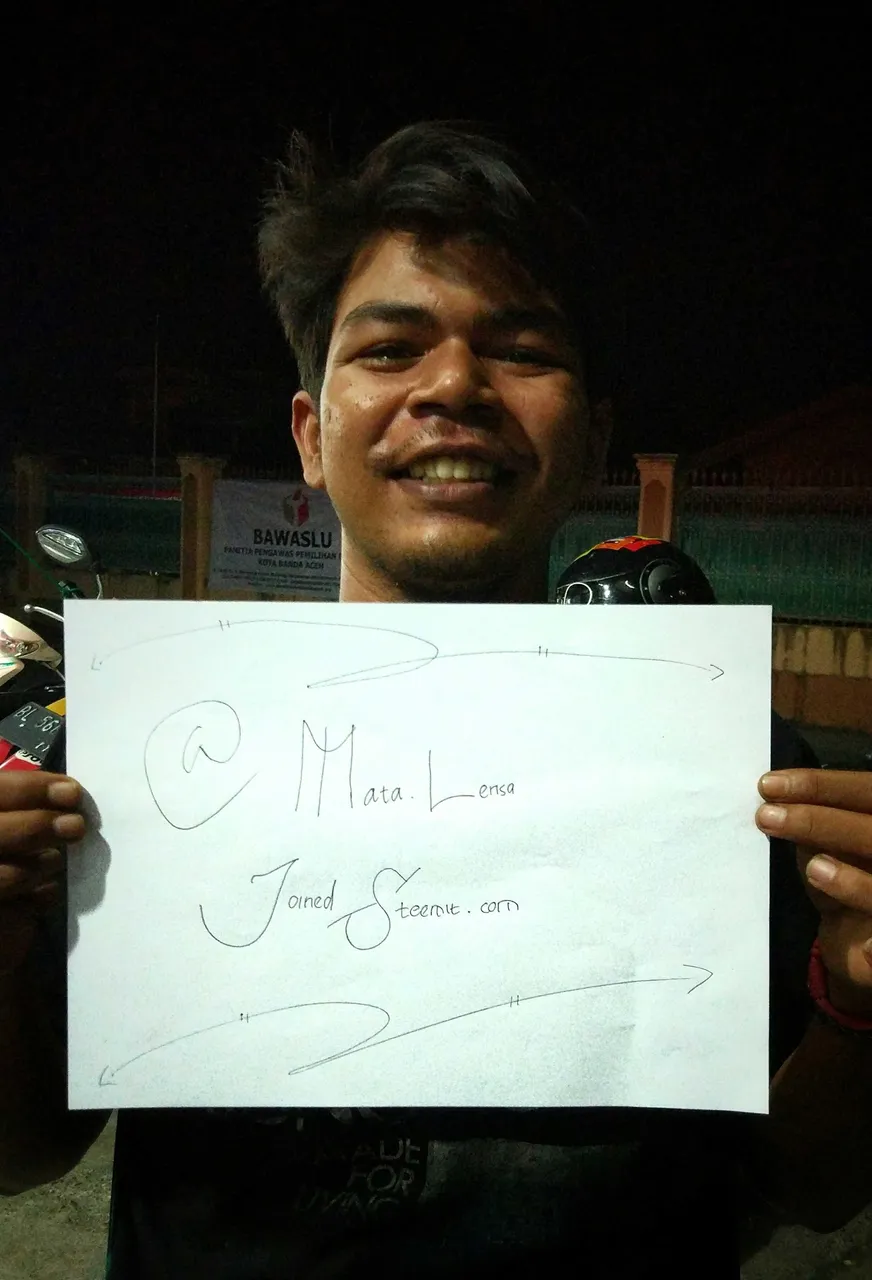 BAWASLU
PANITIA PENGAWAS PEMILIHAN
KOTA BANDA ACEH
BL 561
@ Mata.Lensa
Joined Steemit.com
MADE
FOR
LIVING